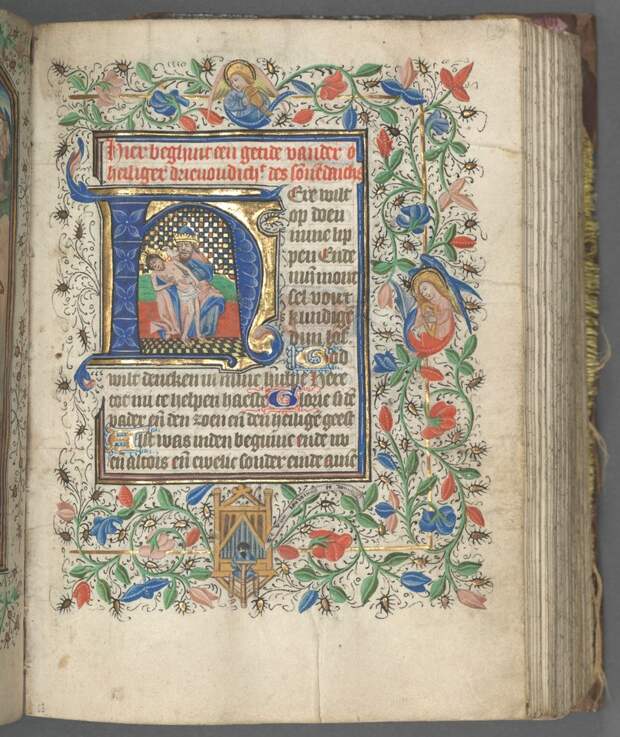 Hier beghint een getide vander
heiliger drievoudich^t des sonnedaechs
Ere wilt
op doen
mine lip
pen Ende
min mont
sel vour
kundige
dijn lof
God
wilt dencken in mine hulpe Here
toe mi te helpen haeste Glorie si dē
vader eñ den zoen eñ den heilige geest
Alst was inden beghinne ende nu
eñ altois eñ ewelic sonder einde amē